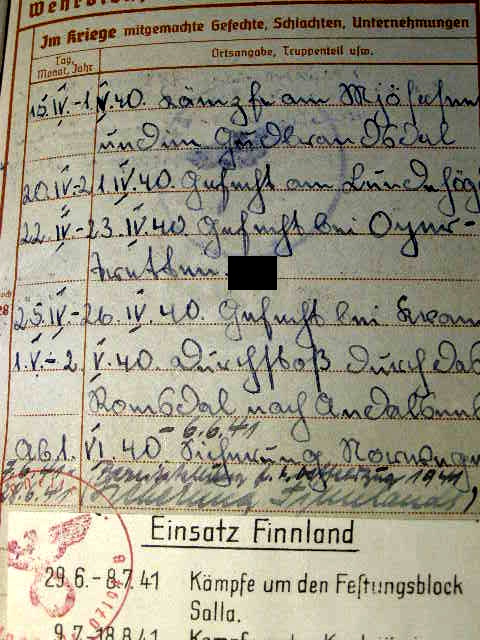 Im Kriege mitgemachte Gefechte, Schlachten, Unternehmungen
Tag, Monat, Jahr
Ortsangabe, Truppenteil usw.
15.IV.-1.V.40. Kämpfe am Mjösasee
und im Gudbrandsdal
20.IV.-21.IV.40. Gefecht am Lundehög
22.IV.-23.IV.40. Gefecht bei Oyer-
25.IV.-26.IV.40. Gefecht bei Kvam
1.V.-2.V.40. Durchstoß durch das
Romsdal nach Andalsnes
- 6.6.41
Ab 1.VI.40 Sicherung Norwegen
7.6.41- 1941
.6.41 Sicherung Finnlands
Einsatz Finnland
29.6.-8.7.41 Kämpfe um den Festungsblock
Salla.
9.7.-18.8.41